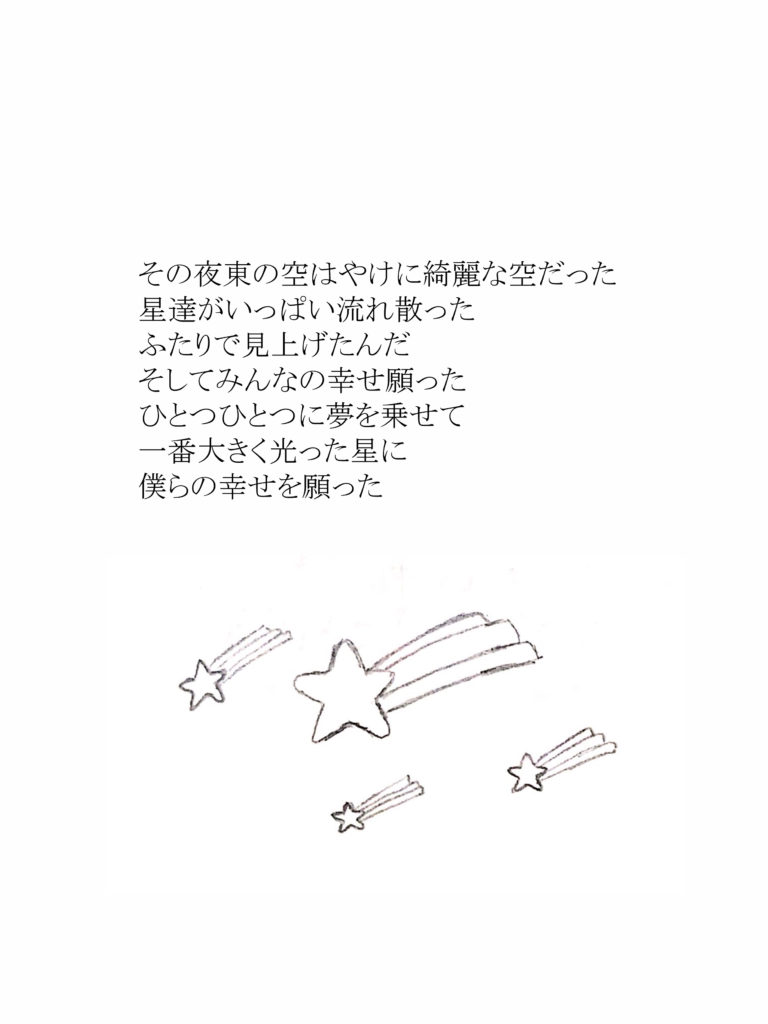 その夜東の空はやけに綺麗な空だった
星達がいっぱい流れ散った
ふたりで見上げたんだ
そしてみんなの幸せ願った
ひとつひとつに夢を乗せて
一番大きく光った星に
僕らの幸せを願った